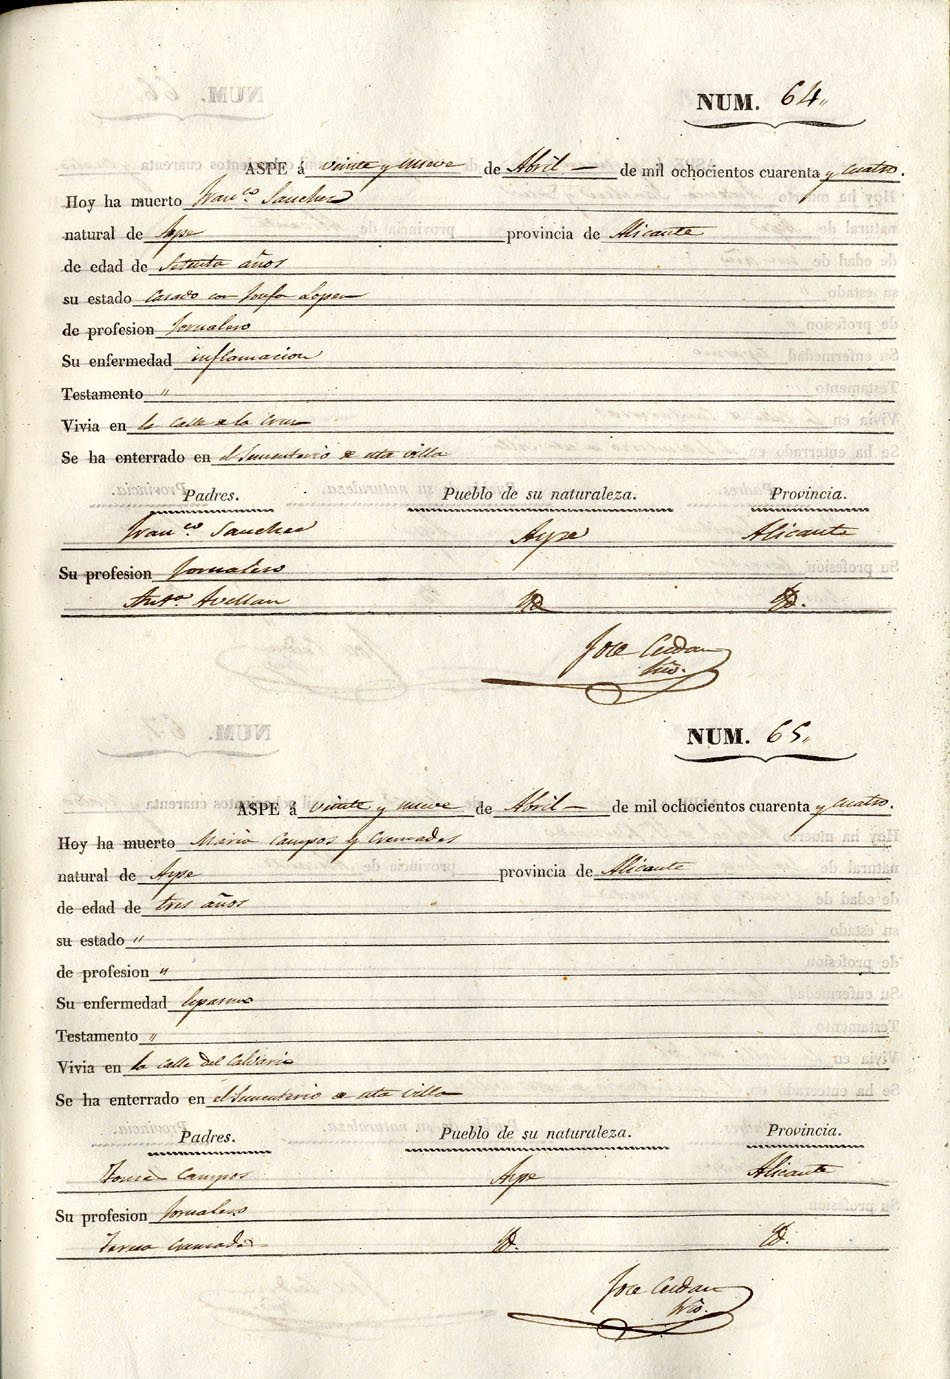 NUM. 64"
ASPE á veinte y nueve de Abril de mil ochocientos cuarenta y cuatro.
Hoy ha muerto Fran.co Sanchez
natural de Aspe provincia de Alicante
de edad de Setenta años
su estado casado con Josefa Lopez
de profesion Jornalero
Su enfermedad inflamacion
Testamento "
Vivia en la Calle de la Cruz
Se ha enterrado en el Sementerio de esta villa
Padres. Pueblo de su naturaleza. Provincia.
Fran.co Sanchez Aspe Alicante
Su profesion Jornalero
Ant.a Avellan Yd Yd.
Jose Cerdan
NUM. 65"
ASPE á veinte y nueve de Abril de mil ochocientos cuarenta y cuatro.
Hoy ha muerto Maria Campos y Cremades
natural de Aspe provincia de Alicante
de edad de tres años
su estado "
de profesion "
Su enfermedad
Testamento "
Vivia en la calle del Calvario
Se ha enterrado en el Sementerio de esta villa
Padres. Pueblo de su naturaleza. Provincia.
Campos Aspe Alicante
Su profesion Jornalero
Teresa Cremades Yd. Yd.
Jose Cerdan